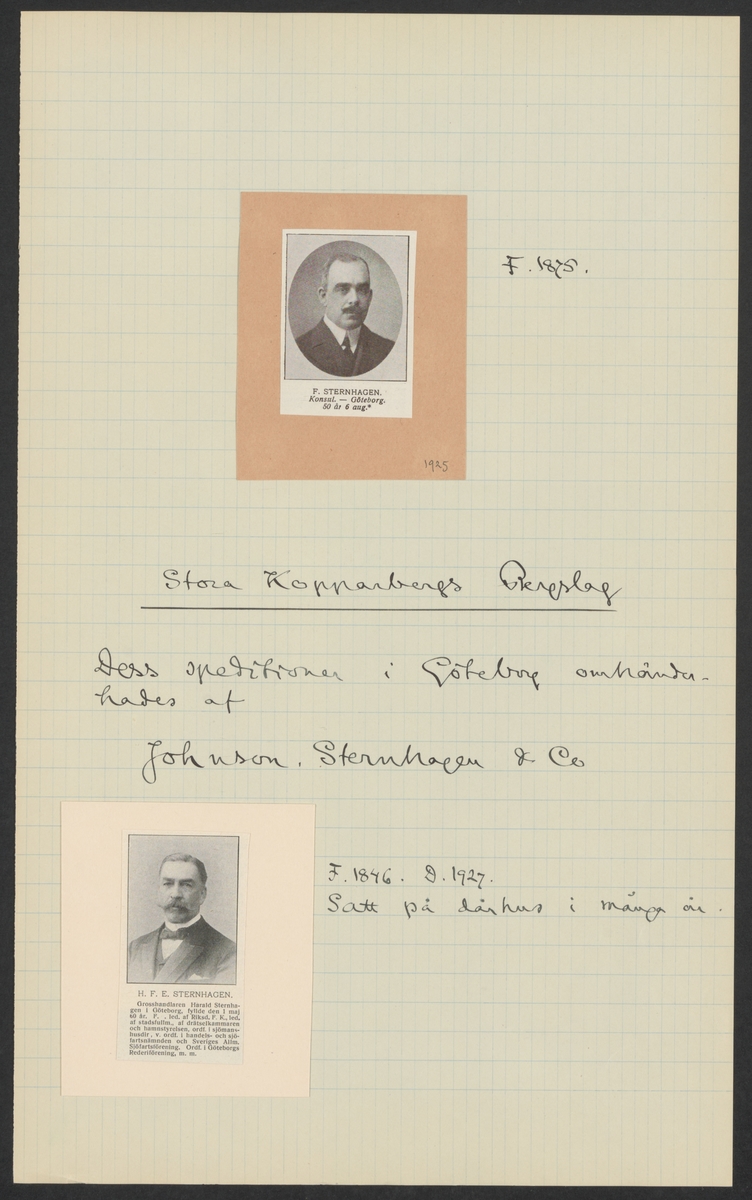 F. 1875.
F. STERNHAGEN.
Konsul. — Göteborg.
50 år 6 aug.*
1925
Stora Kopparbergs Bergslag
Dess speditioner i Göteborg omhänder-
hades af
Johnson, Sternhagen & Co
F. 1846. D. 1927.
Satt på dårhus i många år.
H. F. E. STERNHAGEN.
Grosshandlaren Harald Sternha-
gen i Göteborg, fyllde den 1 maj
60 år. F. . led. af Riksd. F. K., led.
af stadsfullm., af drätselkammaren
och hamnstyrelsen, ordf. i sjömans-
husdir., v. ordf. i handels- och sjö-
fartsnämnden och Sveriges Allm.
Sjöfartsförening. Ordf. i Göteborgs
Rederiförening, m. m.